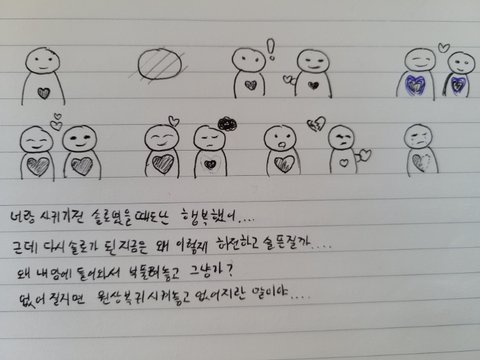 너랑 사귀기전 솔로였을때도난 행복했어....
근데 다시 솔로가 된 지금은 왜 이렇게 허전하고 슬픈걸까....
왜 내맘에 들어와서 부풀려놓고 그냥가?
없어질거면 원상복귀시켜놓고 없어지란 말이야....